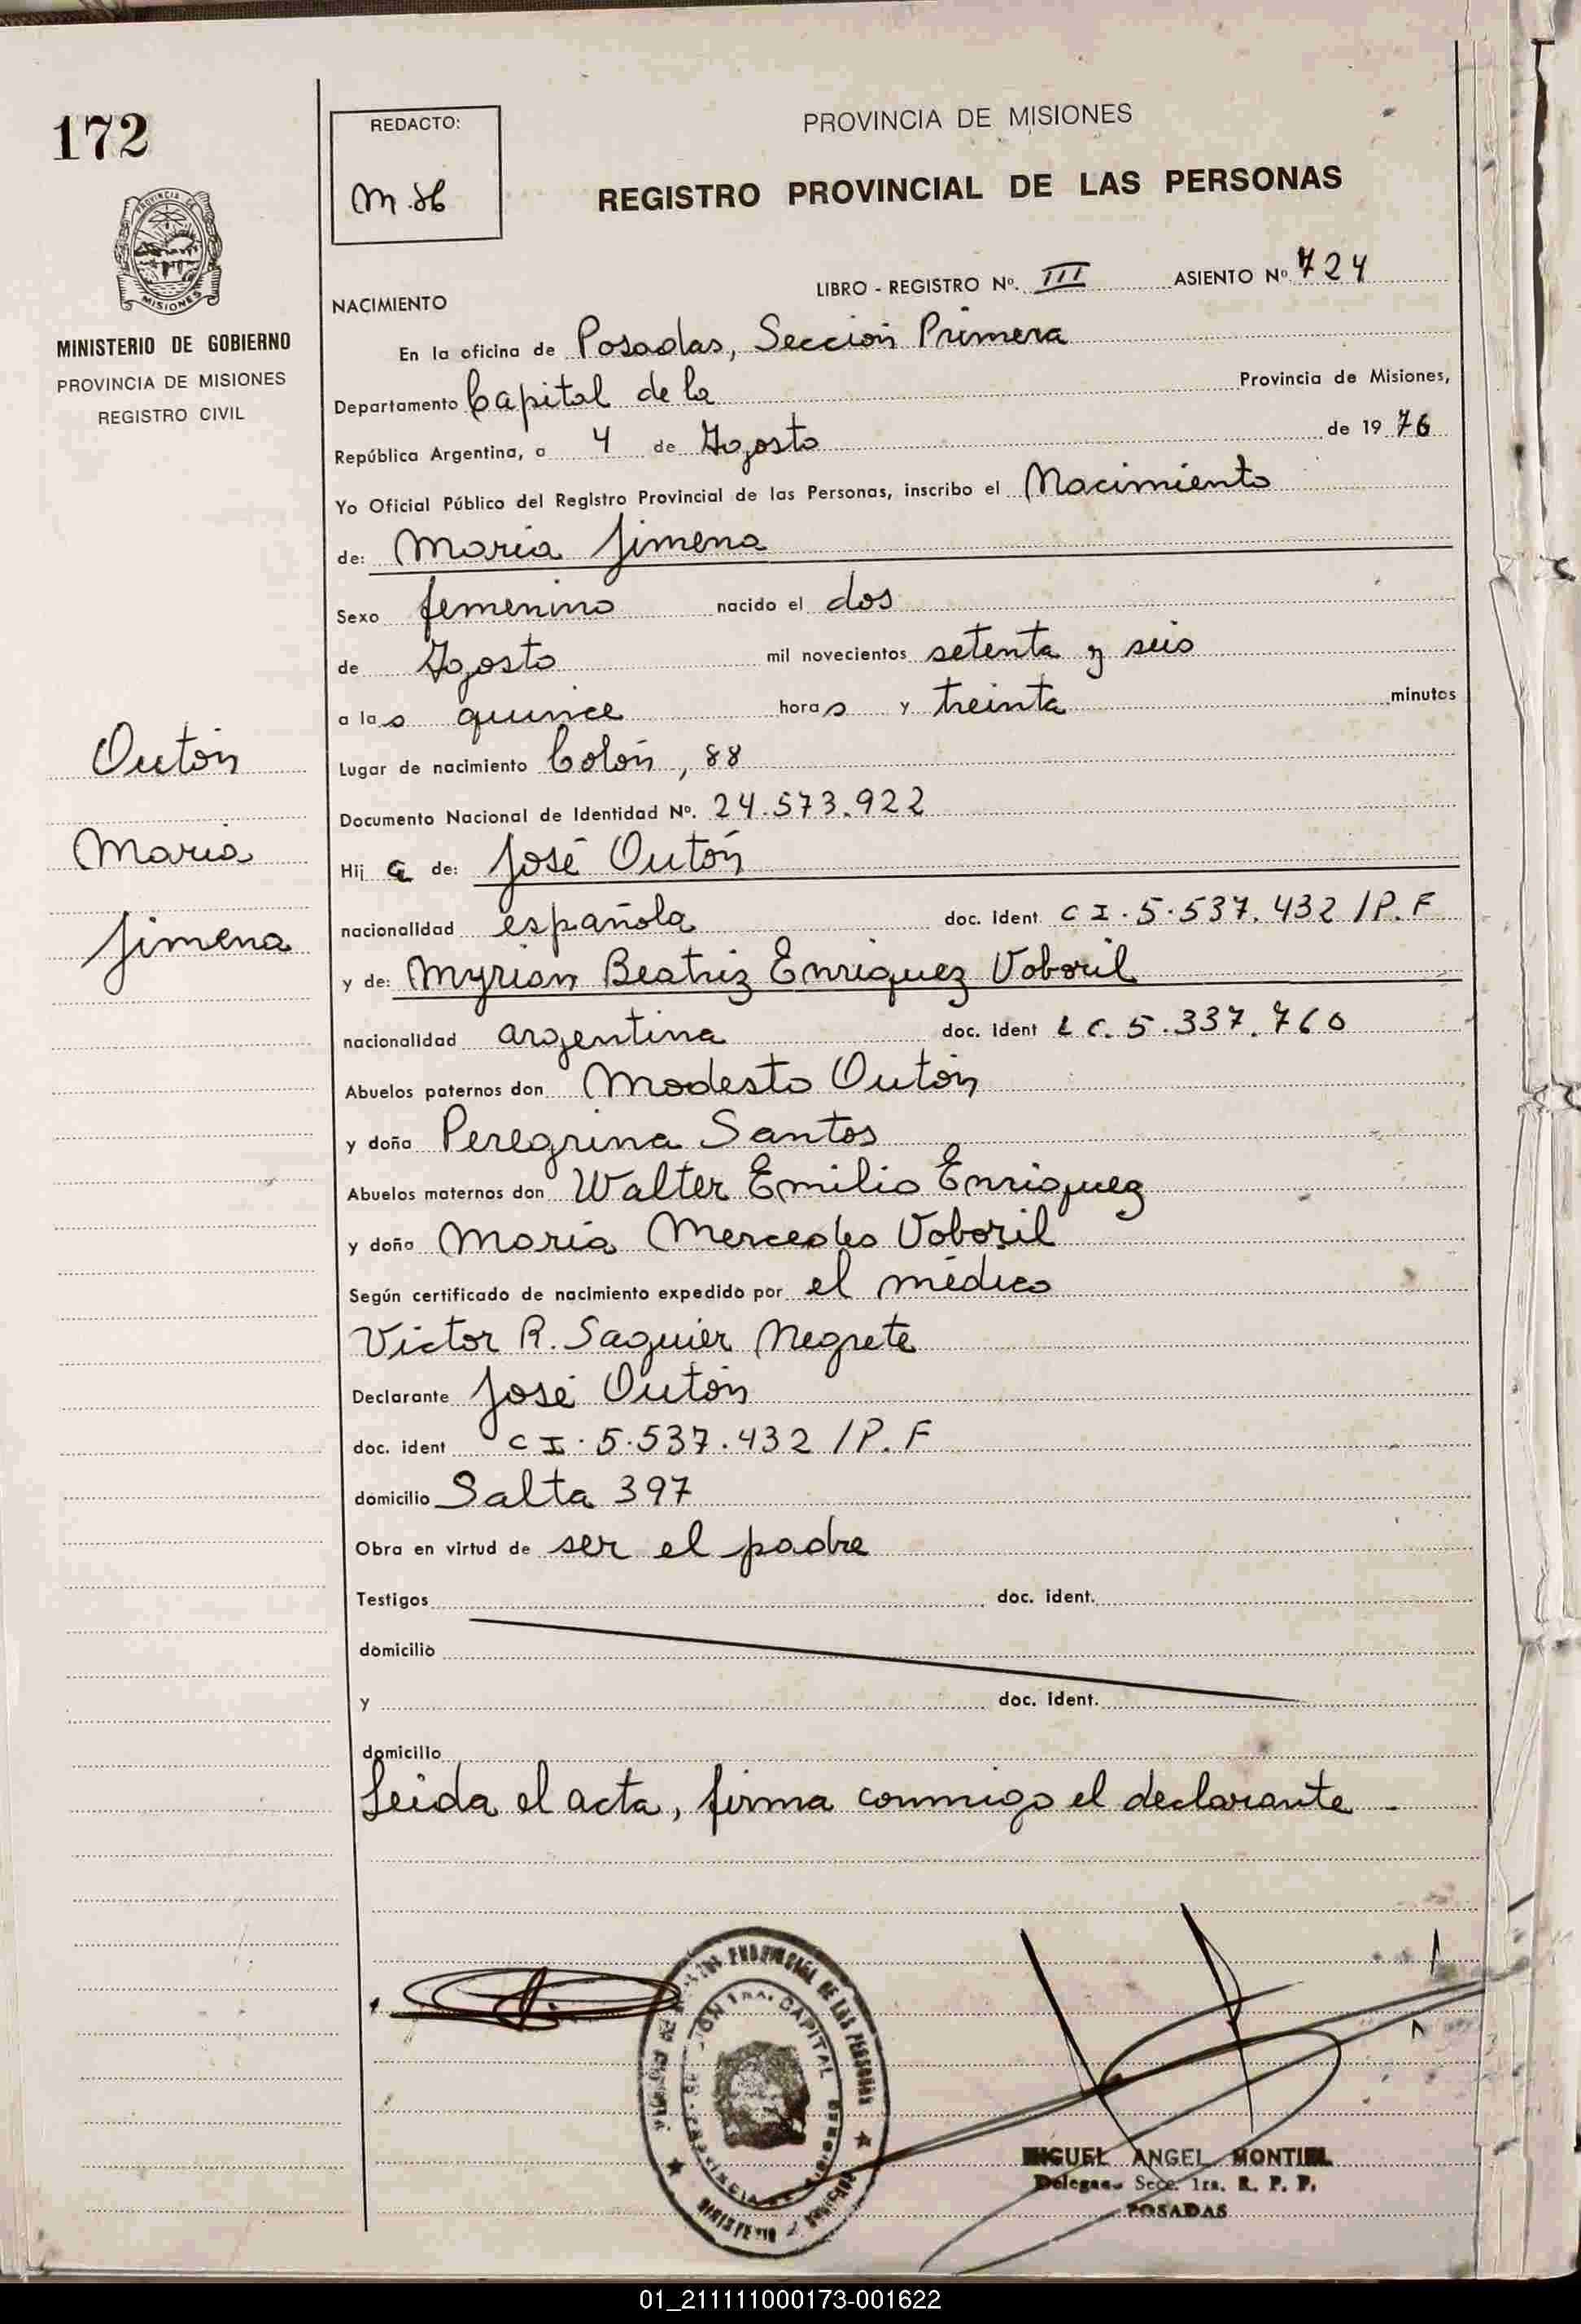 172
REDACTO:
M.H
PROVINCIA DE MISIONES
REGISTRO PROVINCIAL DE LAS PERSONAS
PROVINCIA DE
MISIONES
MINISTERIO DE GOBIERNO
PROVINCIA DE MISIONES
REGISTRO CIVIL
LIBRO - REGISTRO Nº. III ASIENTO Nº 724
NACIMIENTO
En la oficina de Posadas, Sección Primera
Departamento Capital de la Provincia de Misiones,
República Argentina, a 4 de Agosto de 1976
Yo Oficial Público del Registro Provincial de las Personas, inscribo el Nacimiento
de: María Jimena
Sexo femenino nacido el dos
de Agosto mil novecientos setenta y seis
a las quince horas y treinta minutos
Lugar de nacimiento Colón, 88
Documento Nacional de Identidad Nº. 24.573.922
Hija de: José Outón
nacionalidad española doc. Ident. C I. 5.537.432 /P.F
y de: Myrian Beatriz Enriquez Voboril
nacionalidad argentina doc. Ident L C. 5.337.760
Abuelos paternos don Modesto Outón
y doña Peregrina Santos
Abuelos maternos don Walter Emilio Enriquez
y doña María Mercedes Voboril
Según certificado de nacimiento expedido por el médico
Victor R. Saguier Negrete
Declarante José Outón
doc. ident C I. 5.537.432 /P.F
domicilio Salta 397
Obra en virtud de ser el padre
Testigos doc. ident.
domicilio
y doc. ident.
domicilio
Leida el acta, firma conmigo el declarante.
Outón
María
Jimena
PROVINCIAL DE LAS PERSONAS
1ra. CAPITAL
MIGUEL ANGEL MONTIEL
Delegado Secc. 1ra. R. P. P.
POSADAS
01_211111000173-001622